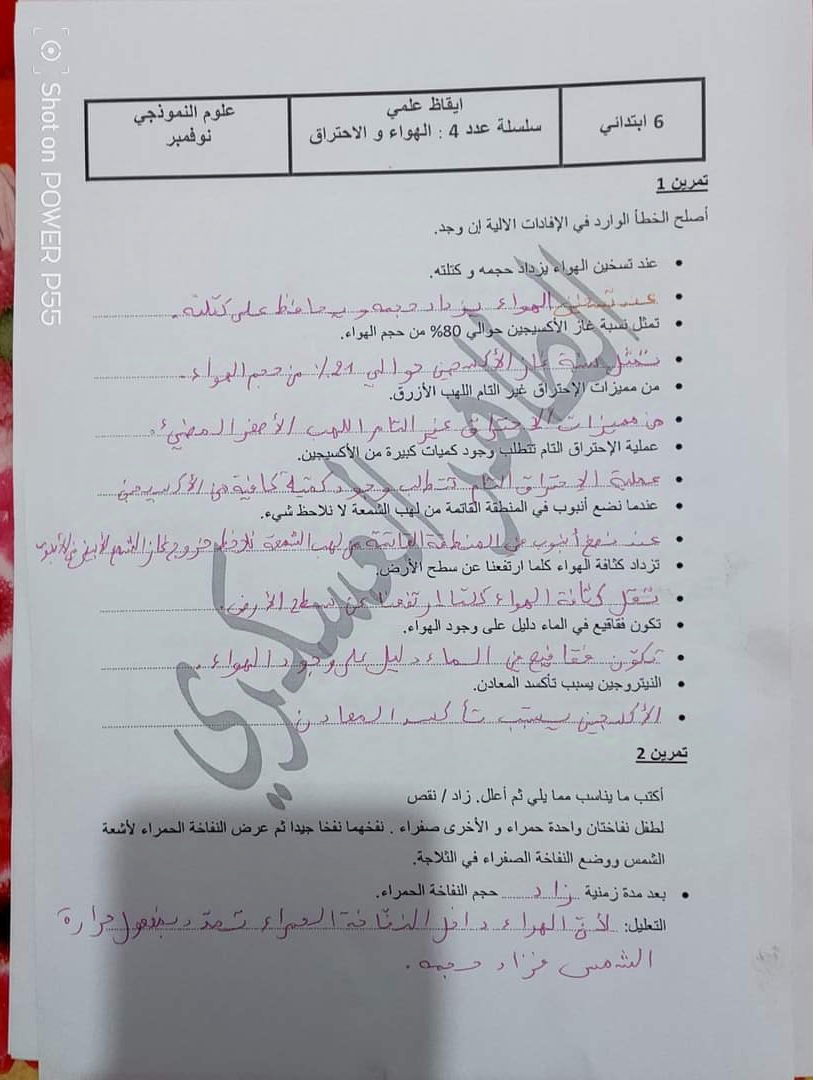 Shot on POWER P55
6 ابتدائي
ايقاظ علمي
سلسلة عدد 4 : الهواء و الاحتراق
علوم النموذجي
نوفمبر
تمرين 1
أصلح الخطأ الوارد في الإفادات الالية إن وجد.
عند تسخين الهواء يزداد حجمه و كتلته.
عند تسخين الهواء يزداد حجمه و يحافظ على كتلته.
تمثل نسبة غاز الأكسيجين حوالي 80% من حجم الهواء.
تمثل نسبة غاز الأكسجين حوالي 21% من حجم الهواء.
من مميزات الإحتراق غير التام اللهب الأزرق.
من مميزات الاحتراق غير التام اللهب الأصفر المضيء.
عملية الإحتراق التام تتطلب وجود كميات كبيرة من الأكسيجين.
عملية الاحتراق التام تتطلب وجود كمية كافية من الأكسيجين
عندما نضع أنبوب في المنطقة القاتمة من لهب الشمعة لا نلاحظ شيء.
عند وضع أنبوب في المنطقة القاتمة من لهب الشمعة نلاحظ خروج غاز الشمع الأبيض من الأنبوب
تزداد كثافة الهواء كلما ارتفعنا عن سطح الأرض.
تقل كثافة الهواء كلما ارتفعنا عن سطح الأرض.
تكون فقاقيع في الماء دليل على وجود الهواء.
تكوّن فقاقيع في الماء دليل على وجود الهواء.
النيتروجين يسبب تأكسد المعادن.
الأكسجين يسبّب تأكسد المعادن
تمرين 2
أكتب ما يناسب مما يلي ثم أعلل. زاد / نقص
لطفل نفاختان واحدة حمراء و الأخرى صفراء . نفخهما نفخا جيدا ثم عرض النفاخة الحمراء لأشعة
الشمس ووضع النفاخة الصفراء في الثلاجة.
بعد مدة زمنية زاد حجم النفاخة الحمراء.
التعليل: لأنّ الهواء داخل النفّاخة الحمراء تمدّد بمفعول حرارة
الشمس فزاد حجمه.
الطاهر العسكري